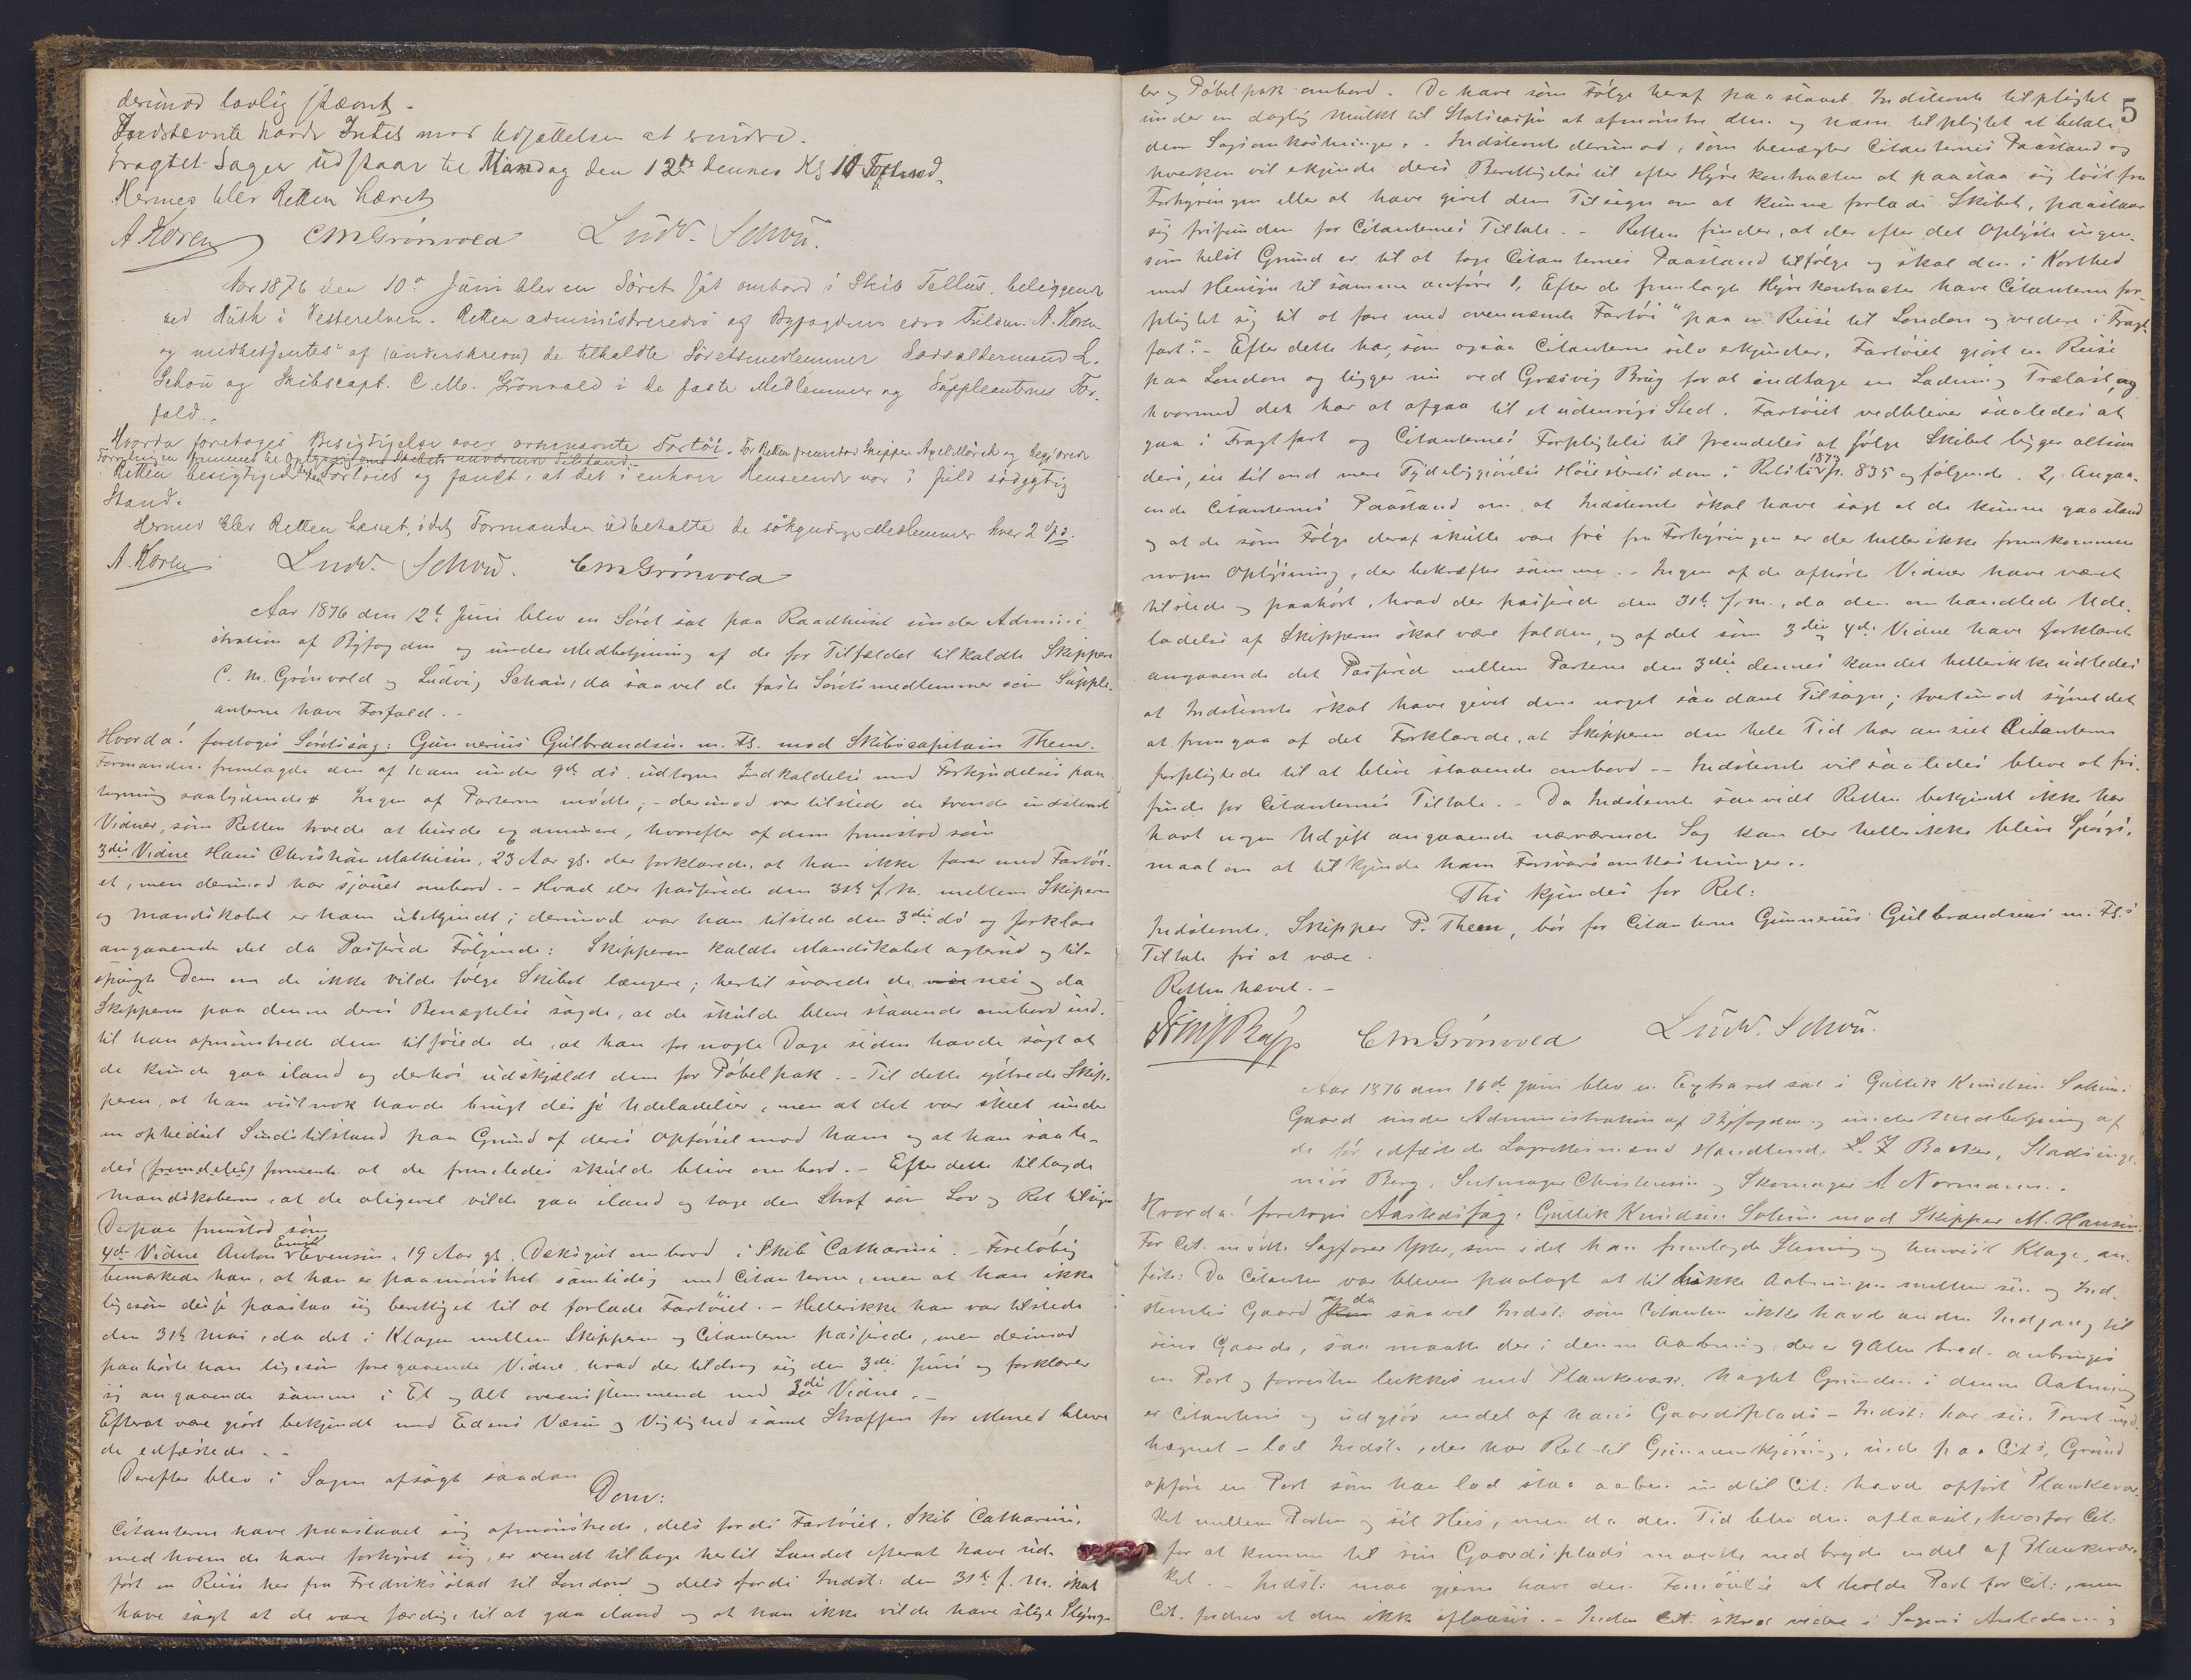 derimod lovlig stævnt.
Indstevnte havde Intet mod Udsættelsen at erindre.
Sagen udstaar til Mandag den 12te dennes Kl 10 Formd.
Hermed blev Retten hævet
A Koren CMGrönvold Ludv. Schou.
Aar 1876 den 10de Juni blev en Söret sat ombord i Skib Tellus, beliggende
ved i Vesterelven. Retten administreredes af Byfogdens edsv Fuldm. A. Koren
og medbetjentes af (underskrevne) de tilkaldte Söretsmedlemmer Lodsoldermand L.
Schou og Skibscapt. C. M. Grönvold i de faste Medlemmer og Suppleanternes For-
fald.
Hvorda foretoges Besigtigelse over ovennævnte Fartöi. For Retten fremstod Skipper Axel Mörch og begjærede
Forretningen fremmet til Oplysning om Skibets nuværende Tilstand.
Retten besigtigede Fartöiet og fandt, at det i enhver Henseende var i fuld södygtig
Stand.
Hermed blev Retten hævet, idet Formanden udbetalte de sökyndige Medlemmer hver 2 Spd.
A. Koren Ludv. Schou. CMGrönvold
Aar 1876 den 12te Juni blev en Söret sat paa Raadhuset under Admini-
stration af Byfogden og under Medbetjening af de for Tilfældet tilkaldte Skippere
C. M. Grönvold og Ludvig Schou, da saavel de faste Söretsmedlemmer som Supple-
anterne have Forfald.
Hvorda! foretoges Söretssag: Gunnerius Gulbrandsen m. Fl. mod Skibscapitain Theen.
Formanden fremlagde den af ham under 9de ds. udtagne Indkaldelse med Forkyndelses paa-
tegning saalydende # Ingen af Parterne mödte; - derimod var tilstede de tvende indstevnte
Vidner, som Retten troede at burde examinere, hvorefter af dem fremstod som
3die Vidne Hans Christian Mathisen, 23 Aar gl. der forklarede, at han ikke farer med Fartöi-
et, men derimod har sjouet ombord. - Hvad der passerede den 31te f. M. mellem Skipperen
og Mandskabet er ham ubekjendt; derimod var han tilstede den 3die ds og forklare
angaaende det da Passerede Fölgende: Skipperen kaldte Mandskabet agterud og til-
spurgte Dem om de ikke vilde fölge Skibet længere; hertil svarede de nei og da
Skipperen paa denne deres Benægtelse sagde, at de skulde blive staaende ombord ind-
til han afmönstrede dem tilföiede de, at han for nogle Dage siden havde sagt at
de kunde gaa iland og derhos udskjældt dem for Pöbelpak. - Til dette yttrede Skip-
peren, at han vistnok havde brugt disse Udeladelser, men at det var skeet under
en ophidset Sindstilstand paa Grund af deres Opförsel mod ham og at han saale-
des (fremdeles) formente at de fremdeles skulde blive ombord. - Efter dette tillagde
Mandskaberne, at de aligevel vilde gaa iland og tage den Straf som Lov og Ret tilsiger
Derpaa fremstod som
4de Vidne Anton Emil Evensen, 19 Aar gl. Dæksgut ombord i Skib Catharine. - Foreløbig
bemærkede han, at han er paamönstret samtidig med Citanterne, men at han ikke
ligesom disse paastaa sig berettiget til at forlade Fartöiet. - Hellerikke han var tilstede
den 31te Mai, da det i Klagen mellem Skipperen og Citanterne passerede, men derimod
paahörte han ligesom foregaaende Vidne, hvad der tildrog sig den 3die Juni og forklarer
sig angaaende samme i Et og Alt overensstemmende med 3die Vidne. -
Efterat være gjort bekjendt med Edens Væsen og Vigtighed samt Straffen for Meneed bleve
de edfæstede. -
Derefter blev i Sagen afsagt saadan
Dom:
Citanterne have paastaaet sig afmönstrede, dels fordi Fartöiet, Skib Catharine,
med hvem de have forhyret sig, er vendt tilbage hertil Landet efterat have ud-
fört en Reise her fra Fredriksstad til London og dels fordi Indst: den 31te f. M. skal
have sagt at de vare færdige til at gaa iland og at han ikke vilde have slige Slyng-
ler og Pöbelpak ombord. De have som Fölge heraf paastaaet Indstevnte tilpligtet
5
under en daglig Mulkt til Statscassen at afmönstre dem og være tilpligtet at betale
dem Sagsomkostninger. - Indstevnte derimod, som benægter Citanternes Paastand og
hverken vil erkjende deres Berettigelse til efter Hyrekontracten at paastaa sig löst fra
Forhyringen eller at have givet dem Tilsagn om at kunne forlade Skibet, paastaar
sig frifunden for Citanternes Tiltale. - Retten finder, at der efter det Oplyste ingen-
som helst Grund er til at tage Citanternes Paastand tilfölge og skal den i Korthed
med Hensyn til samme anföre 1, Efter de fremlagte Hyrekontracter have Citanterne for-
pligtet sig til at fare med ovennævnte Fartöi "paa en Reise til London og videre i Fragt-
fart." - Efter dette har, som ogsaa Citanterne selv erkjender, Fartöiet gjort en Reise
paa London og ligger nu ved Græsvig Brug for at indtage en Ladning Trælast, og
hvormed det har at afgaa til et udenrigs Sted. Fartöiet vedbliver saaledes at
gaa i Fragtfart og Citanternes Forpligtelse til fremdeles at fölge Skibet ligger altsaa
deri, see til end mere Tydeliggjörelse Höiesteretsdom i Retstid. 1874 p. 835 og fölgende. 2, Angaa-
ende Citanternes Paastand om, at Indstevnte skal have sagt at de kunne gaa iland
og at de som Fölge deraf skulle være fri fra Forhyringen er der hellerikke fremkommen
nogen Oplysning, der bekræfter samme. - Ingen af de afhörte Vidner have været
tilstede og paahört, hvad der passerede den 31te f. M., da den omhandlede Ude-
ladelse af Skipperen skal være falden, og af det som 3die og 4de Vidne have forklaret
angaaende det Passerede mellem Parterne den 3die dennes kan det hellerikke udledes
at Indstevnte skal have givet dem noget saadant Tilsagn; tvertimod synes det
at fremgaa af det Forklarede, at Skipperen den hele Tid har anseet Citanterne
forpligtede til at blive staaende ombord. - Indstevnte vil saaledes blive at fri-
finde for Citanternes Tiltale. - Da Indstevnte saavidt Retten bekjendt ikke har
havt nogen Udgift angaaende nærværende Sag kan der hellerikke blive Spörgs-
maal om at tilkjende ham Forsvarsomkostninger. -
Thi kjendes for Ret:
Indstevnte, Skipper P. Theen, bör for Citanterne Gunnerius Gulbrandsens m. Fl.s
Tiltale fri at være.
Retten hævet. -
CMGrönvold Ludv. Schou.
Aar 1876 den 16de Juni blev en Extraret sat i Gullik Knudsen Solums
Gaard under Administration af Byfogden og under Medbetjening af
de för edfæstede Lagrettesmænd Handlende L. J Backer, Stadsinge-
niör Berg, Christensen og Skomager A Normann. -
Hvorda! foretoges Aastedssag: Gullik Knudsen Solum mod Skipper M. Hansen.
For Cit. mödte Sagförer, som idet han fremlagde Stevning og henviste Klage, an-
förte: Da Citanten var bleven paalagt at tillukke Aabningen mellem sin og Ind-
stevntes Gaard og da saavel Indst: som Citanten ikke havde anden Indgang til
sine Gaarde, saa maatte der i denne Aabning, der er 9 Alen bred, anbringes
en Port og forresten lukkes med Plankeværk. Uagtet Grunden i denne Aabning
er Citantens og udgjör endel af hans Gaardsplads - Indst: har sin Tomt ind-
hægnet - lod Indst:, der har Ret til Gjennemkjöring, inde paa Cit's Grund
opföre en Port som han lod staa aaben indtil Cit: havde opfört Plankevær-
ket mellem Porten og sit Huus, men da den Tid blev den aflaaset, hvorfor Cit:
for at komme til sin Gaardsplads maatte nedbryde endel af Plankevær-
ket. - Indst: maa gjerne have den Fornöielse at holde Port for Cit:, men
Cit. fordrer at den ikke aflaases. - Inden Cit. skred videre i Sagens Anledning